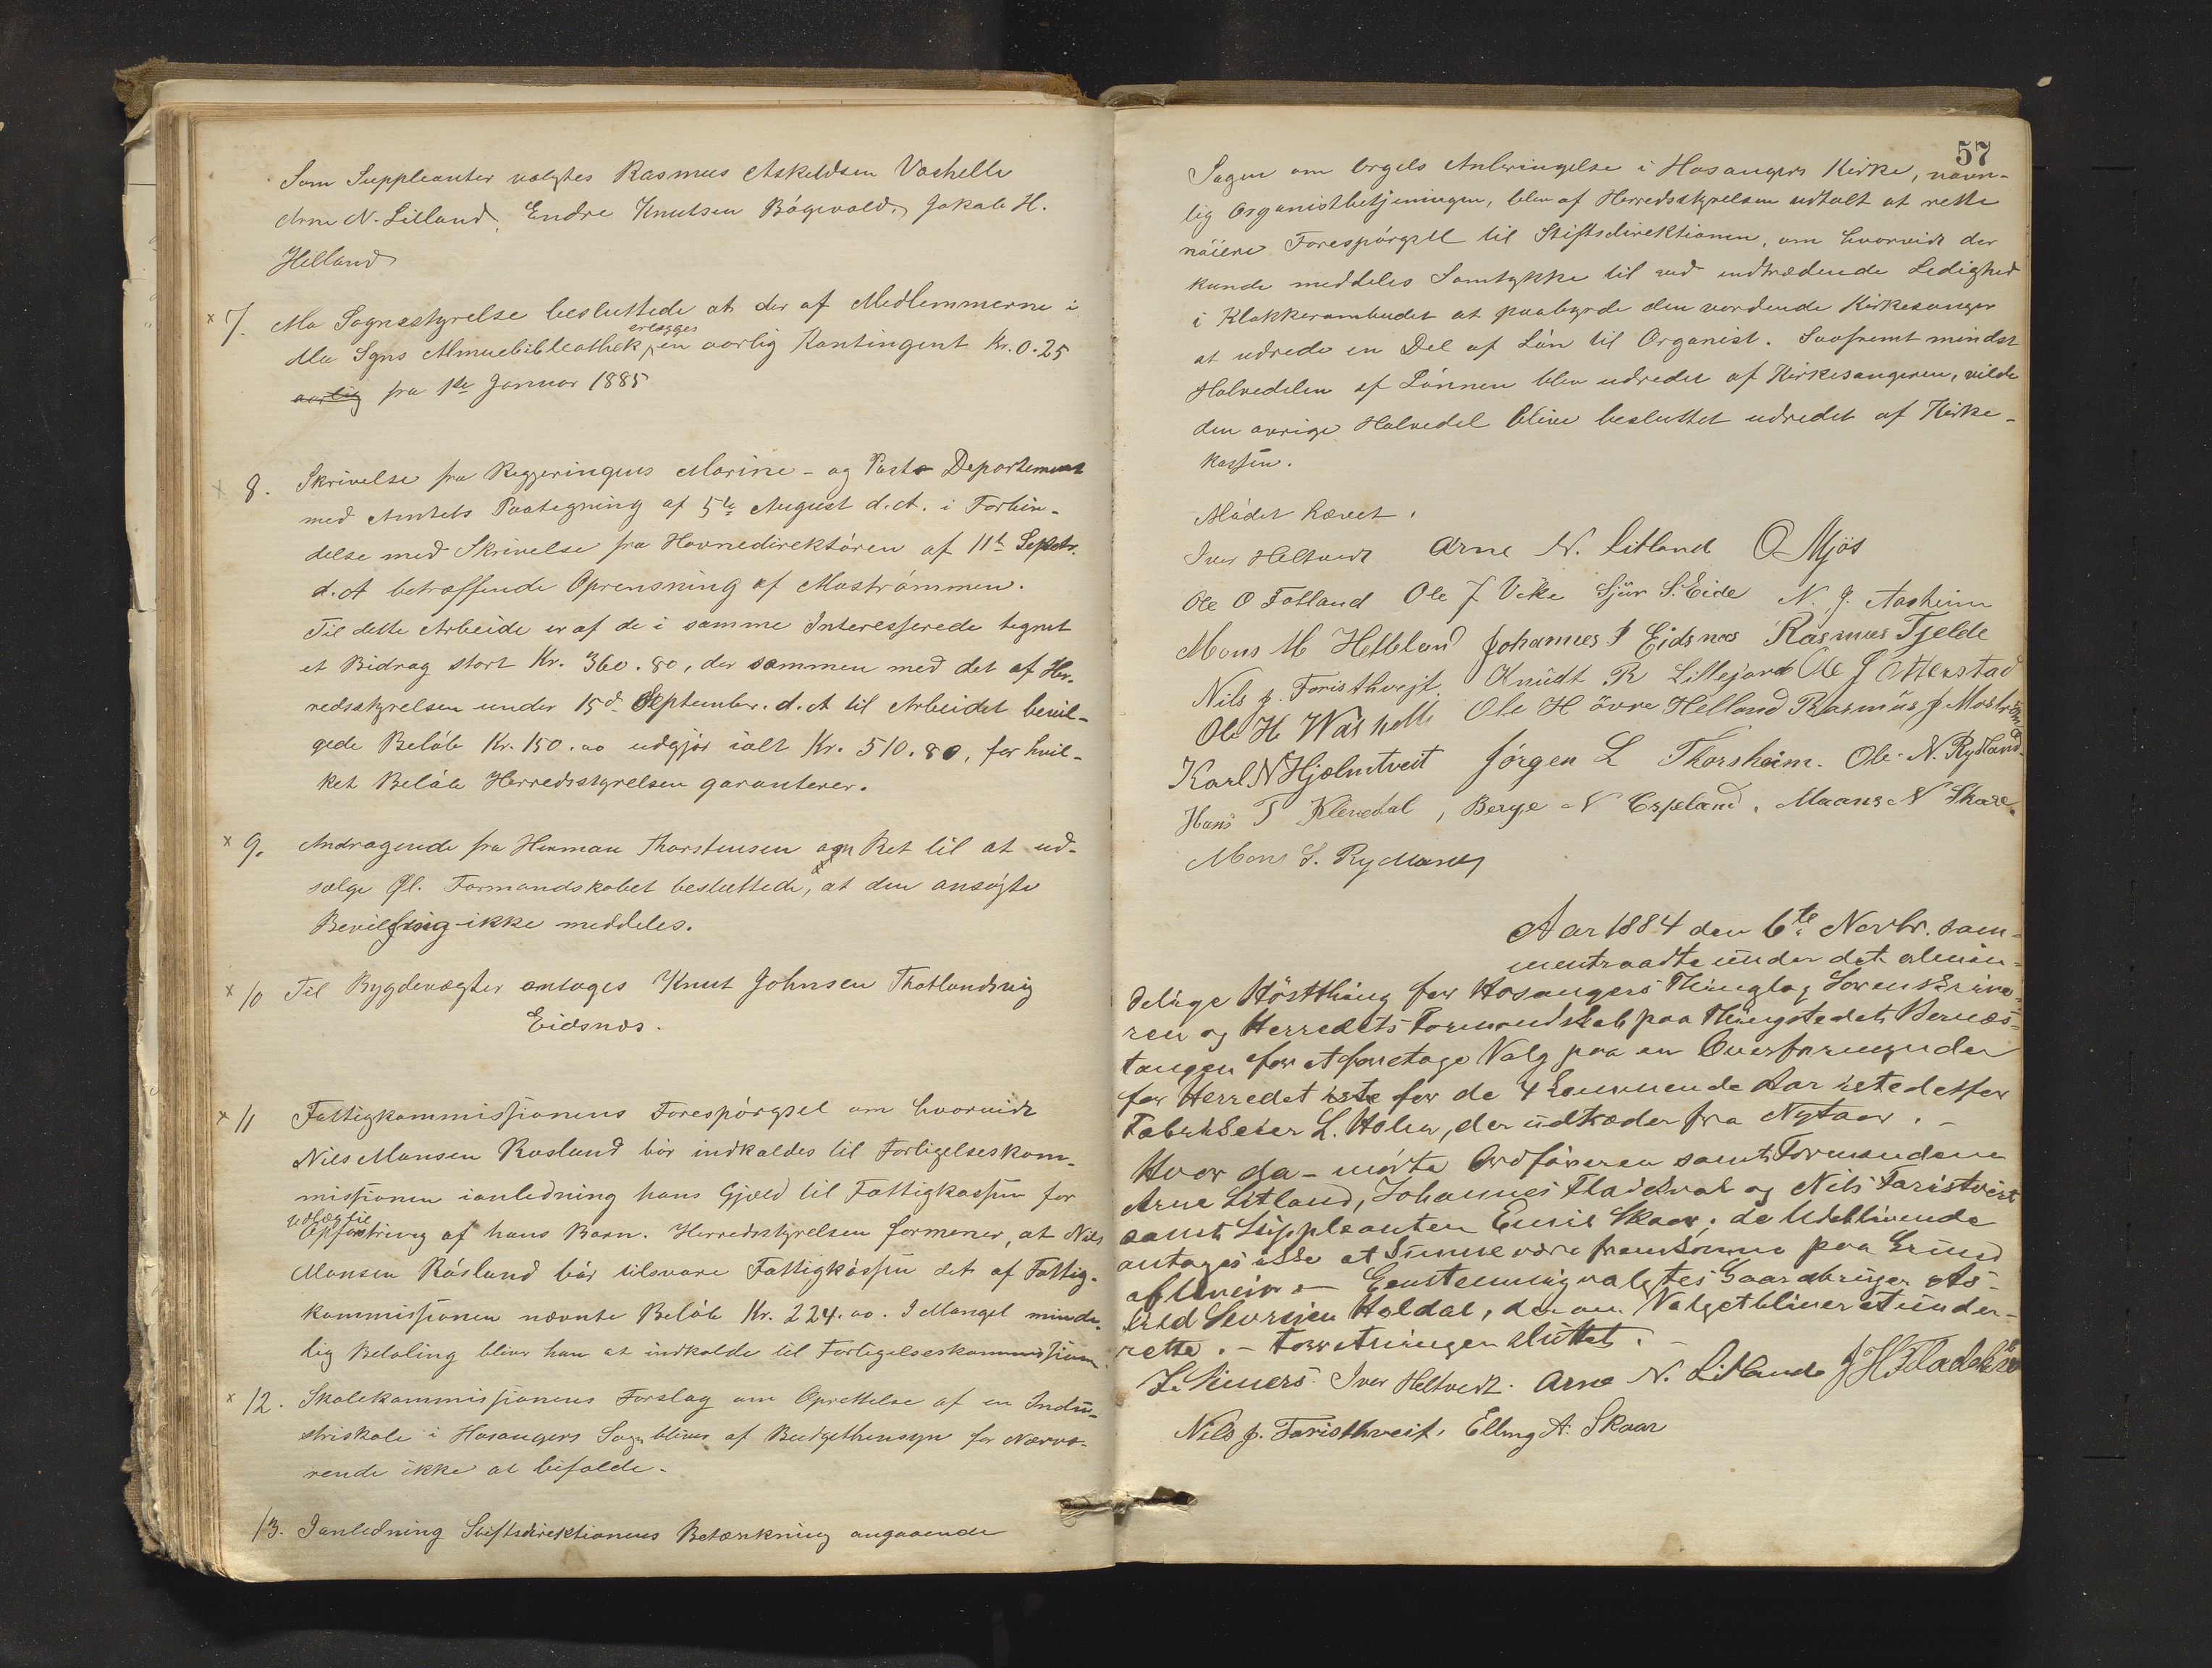 Som Suppleanter valgtes Rasmus Askeldsen Vashelle
Arne N. Litland, Endre Knutsen Bögevold, Jakob H.
Helland
x 7. Mo Sognestyrelse besluttede at der af Medlemmerne i
Mo Sgns Almuebibliothek erlægges en aarlig Kontingent Kr. 0.25
aarlig fra 1ste Januar 1885
x 8. Skrivelse fra Regjeringens Marine- og Post- Departement
med Amtets Paategning af 5te August d.A. i Forbin-
delse med Skrivelse fra Havnedirektören af 11te Septbr.
d.A betræffende Oprensning af Mostrømmen.
Til dette Arbeide er af de i samme Interesserede tegnet
et Bidrag stort Kr. 360.80, der sammen med det af Her-
redsstyrelsen under 15de September d.A til Arbeidet bevil-
gede Beløb Kr. 150.00 udgjør ialt Kr. 510.80, for hvil-
ket Beløb Herredsstyrelsen garanterer.
x 9. Andragende fra Herman Thorstensen om Ret til at ud-
sælge Øl. Formandskabet besluttede, at den ansøgte
Bevilgning ikke meddeles.
x 10 Til Bygdevægter antages Knut Johnsen Thotlandsvig
Eidsnes.
x 11 Fattigkommissionens Forespørgsel om hvorvidt
Nils Monsen Rosland bör indkaldes til Forligelseskom-
missionen ianledning hans Gjæld til Fattigkassen for
Udlæg til
Opfostring af hans Barn. Herredsstyrelsen formener, at Nils
Monsen Rösland bör tilsvare Fattigkassen det af Fattig-
kommissionen nævnte Beløb Kr. 224.00. I Mangel minde-
lig Betaling bliver han at indkalde til Forligelseskommissionen
x 12. Skolekommissionens Forslag om Oprettelse af en Indu-
striskole i Hosangers Sogn bliver af Budgethensyn for Nærvæ-
rende ikke at bifalde.
13. Ianledning Stiftsdirektionens Betænkning angaaende
57
Sagen om Orgels Anbringelse i Hosangers Kirke, navn-
lig Organistbetjeningen, blev af Herredsstyrelsen udtalt at rette
nöiere Forespörgsel til Stiftsdirektionen, om hvorvidt der
kunde meddeles Samtykke til ved indtrædende Ledighed
i Klokkerombudet at paabyrde den vordende Kirkesanger
at udrede en Del af Lön til Organist. Saafremt mindst
Halvedelen af Lönnen blev udredet af Kirkesangeren, vilde
den øvrige Halvedel blive besluttet udredet af Kirke-
kassen.
Mödet hævet.
Iver Heltvedt Arne N. Litland O Mjös
Ole O Fatland Ole J Vike Sjur S. Eide N. J. Aasheim
Mons M Helleland Johannes J Eidsnes Rasmus Tjelde
Nils J. Foristhveit. Knudt R Lillejord Ole J
Ole H Washelle Ole H övre Helland Rasmus J Mostrøm
Karl N Hjelmtveit Jørgen L Thorsheim. Ole N. Rydland.
Hans T Klevedal, Berge N Espeland. Maans N Skare.
Mons S. Rydland
Aar 1884 den 6te Novbr. sam-
mentraadte under det almin-
delige Høstthing for Hosangers Thinglag Sorenskrive-
ren og Herredets Formandskab paa Thingstedet Bernæs-
tangen for at foretage Valg paa en Overformynder
for Herredet for de 4 kommende Aar istedetfor
Fabrikeier L. Holm, der udtræder fra Nytaar. -
Hvor da mødte Ordføreren samt Formændene
Arne Litland, Johannes Fladekval og Nils Faristveit
samt Suppleanten Skaar; de Udeblivende
antages ikke at kunne være fremkomne paa Grund
af Uveir. - Eenstemmig valgtes Gaardbruger As-
Haldal, der om Valget bliver at under-
rette. - Forretningen sluttet. -
Iver Heltvedt. Arne N. Litland J H Fladekval
Nils J. Faristhveit, Elling A. Skaar